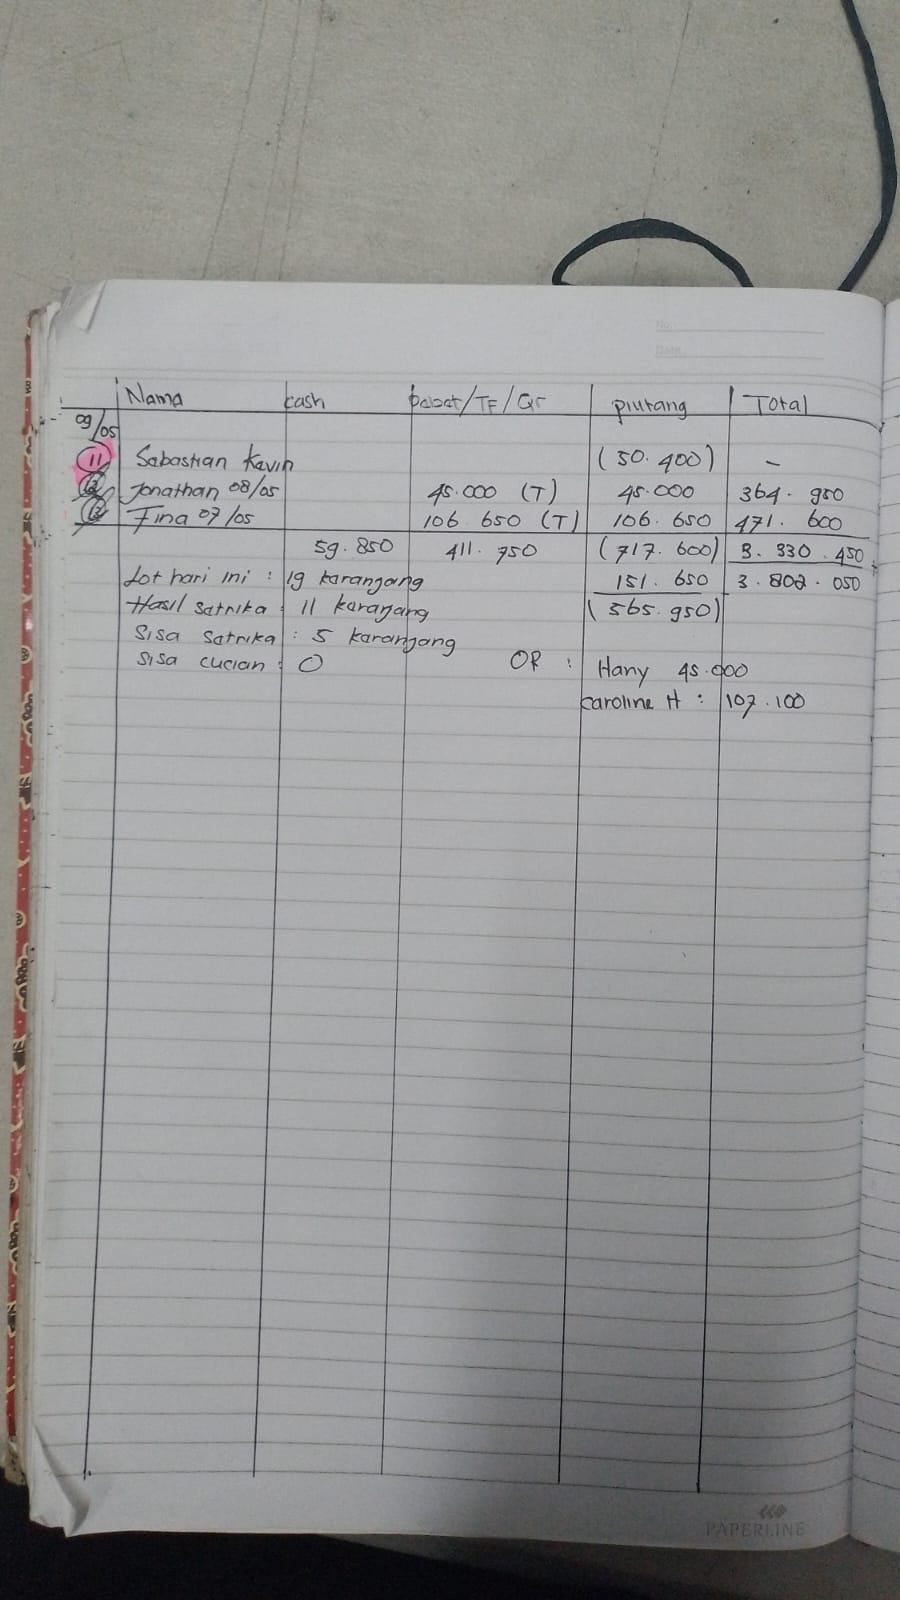 No.
Date
Nama cash Debet/TF/Qr piutang Total
09/05
11 Sabastian Kevin (50.400) -
12 Jonathan 08/05 45.000 (T) 45.000 364.950
13 Fina 07/05 106.650 (T) 106.650 471.600
59.850 411.750 (717.600) 3.330.450
Lot hari ini : 19 karanjang 151.650 3.802.050
Hasil satrika : 11 karanjang (565.950)
Sisa satrika : 5 karanjang
Sisa cucian : 0 OR : Hany 45.000
Caroline H : 107.100
PAPERLINE